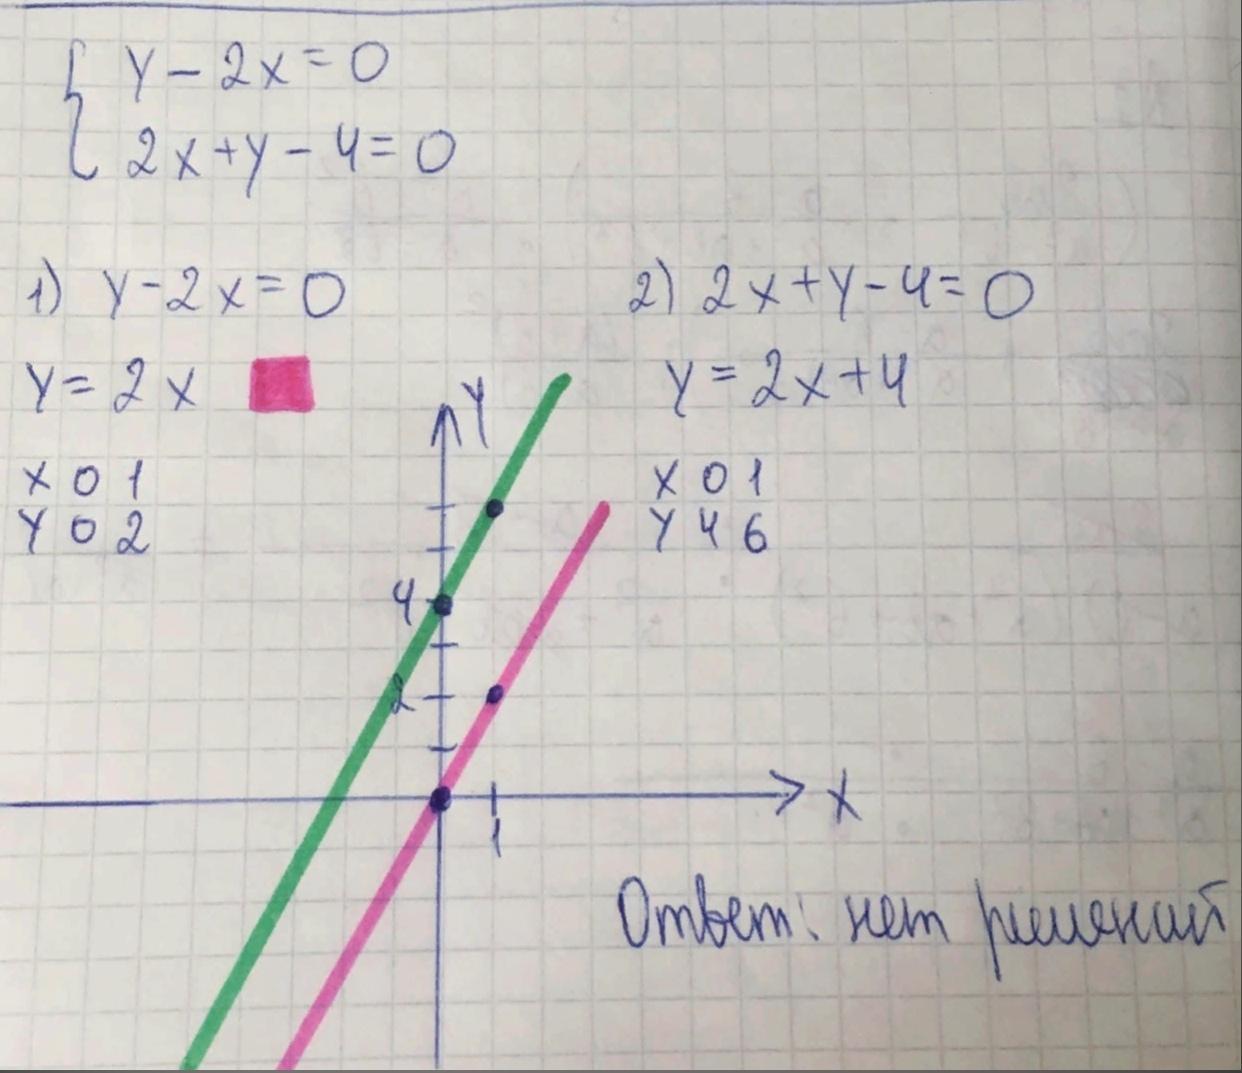 y - 2x = 0
2x + y - 4 = 0
1) y - 2x = 0
2) 2x + y - 4 = 0
y = 2x
y = 2x + 4
x 0 1
y 0 2
x 0 1
y 4 6
y
4
2
1
x
Ответ: нет решений